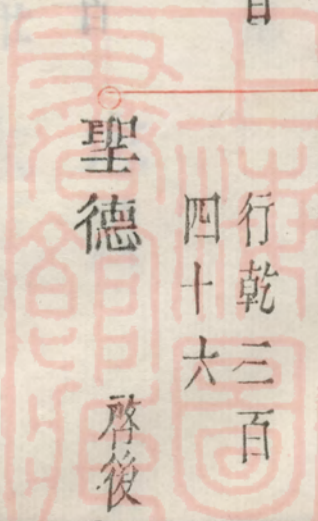 行乾三百
四十六
聖德 啓後